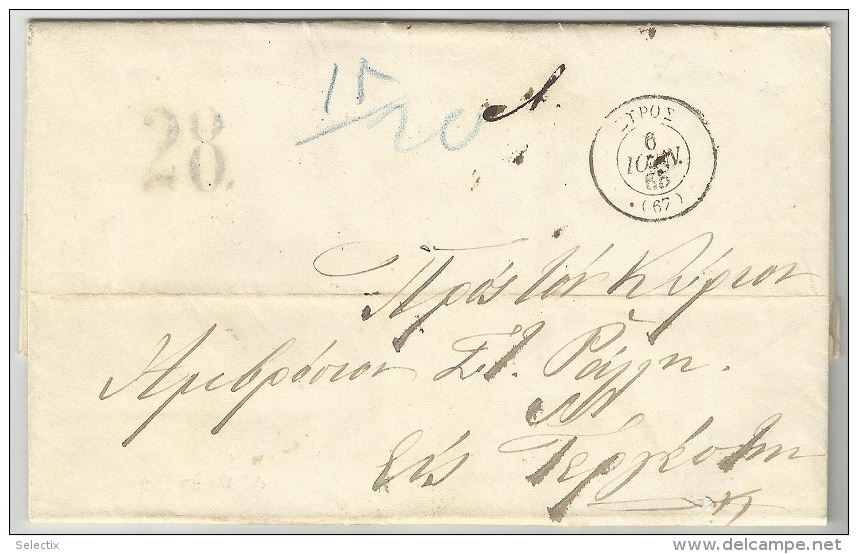 28.
15
20
ΣΥΡΟΣ
6
ΙΟΥΝ.
65
(67)
Πρός τόν Κύριον
Αμβρόσιον Στ. Ράλλη.
Είς Τεργέστην
Selectix
www.delcampe.net